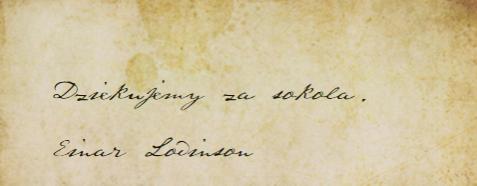 Dziekujemy za sokola.
Einar Lodinson